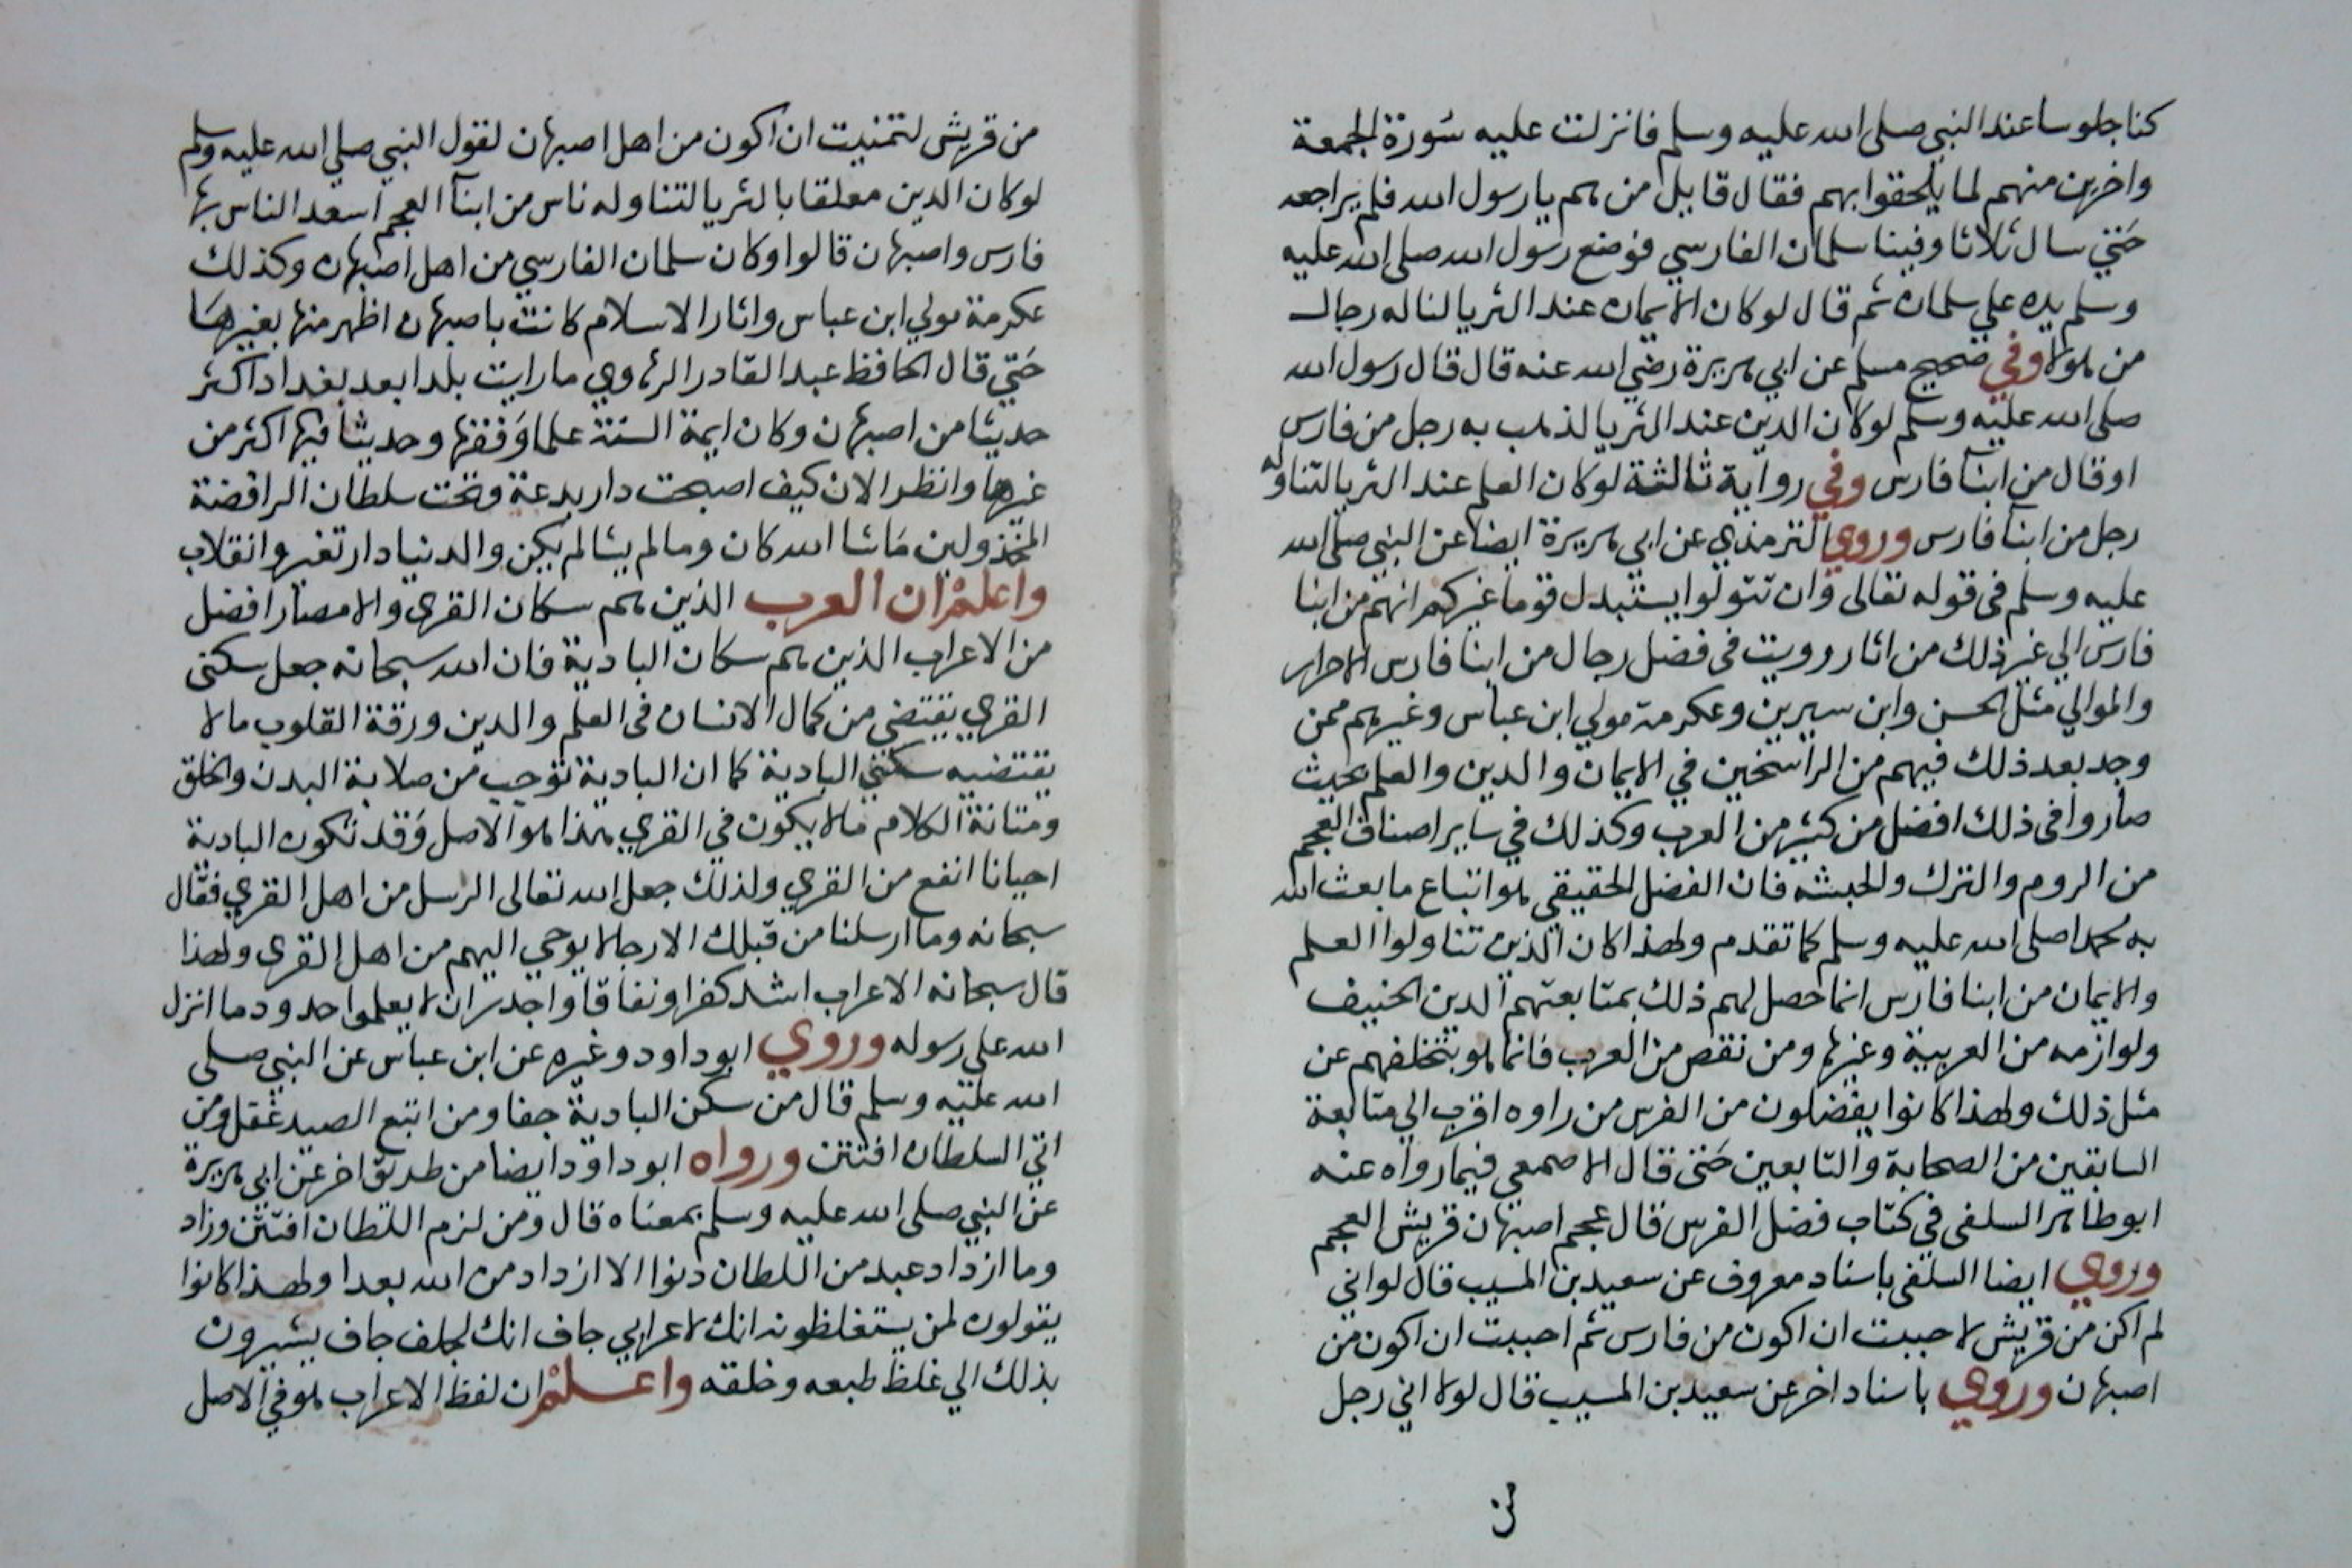 كنا جلوسا عند النبي صلى الله عليه وسلم فانزلت عليه سورة الجمعة
واخرين منهم لما يلحقوا بهم فقال قايل من هم يا رسول الله فلم يراجعه
حتي سال ثلاثا وفينا سلمان الفارسي فوضع رسول الله صلى الله عليه
وسلم يده علي سلمان ثم قال لو كان الايمان عند الثريا لناله رجال
من هولا وفي صحيح مسلم عن ابي هريرة رضي الله عنه قال قال رسول الله
صلى الله عليه وسلم لو كان الدين عند الثريا لذهب به رجل من فارس
او قال من ابنآ فارس وفي رواية ثالثة لو كان العلم عند الثريا لتناوله
رجل من ابنا فارس وروي الترمذي عن ابي هريرة ايضا عن النبي صلى الله
عليه وسلم فى قوله تعالى وان تتولوا يستبدل قوما غيركم انهم من ابنا
فارس الي غير ذلك من اثار رويت فى فضل رجال من ابنا فارس الاحرار
والموالي مثل الحسن وابن سيرين وعكرمة مولي ابن عباس وغيرهم ممن
وجد بعد ذلك فيهم من الراسخين في الايمان والدين والعلم بحيث
صاروا فى ذلك افضل من كثير من العرب وكذلك في ساير اصناف العجم
من الروم والترك والحبشه فان الفضل الحقيقي هو اتباع ما بعث الله
به محمدا صلى الله عليه وسلم كما تقدم ولهذا كان الذين تناولوا العلم
والايمان من ابنا فارس انما حصل لهم ذلك بمتابعتهم الدين الحنيف
ولوازمه من العربية وغيرها ومن نقص من العرب فانما هو بتخلفهم عن
مثل ذلك ولهذا كانوا يفضلون من الفرس من راوه اقرب الي متابعة
السابقين من الصحابة والتابعين حتى قال الاصمعي فيما رواه عنه
ابو طاهر السلفى في كتاب فضل الفرس قال عجم اصبهان قريش العجم
وروي ايضا السلفى باسناد معروف عن سعيد بن المسيب قال لو اني
لم اكن من قريش لاحببت ان اكون من فارس ثم احببت ان اكون من
اصبهان وروي باسناد اخر عن سعيد بن المسيب قال لولا اني رجل
من قريش لتمنيت ان اكون من اهل اصبهان لقول النبي صلي الله عليه وسلم
لو كان الدين معلقا بالثريا لتناوله ناس من ابنآ العجم اسعد الناس بها
فارس واصبهان قالوا وكان سلمان الفارسي من اهل اصبهان وكذلك
عكرمة مولي ابن عباس واثار الاسلام كانت باصبهان اظهر منها بغيرها
حتي قال الحافظ عبد القادر الرهاوي ما رايت بلدا بعد بغداد اكثر
حديثا من اصبهان وكان ايمة السنة علما وفقها وحديثا فيها اكثر من
غيرها وانظر الان كيف اصبحت دار بدعة وتحت سلطان الرافضة
المخذولين ما شا الله كان وما لم يشا لم يكن والدنيا دار تغير وانقلاب
واعلم ان العرب الذين هم سكان القرى والامصار افضل
من الاعراب الذين هم سكان البادية فان الله سبحانه جعل سكنى
القري يقتضي من كمال الانسان فى العلم والدين ورقة القلوب مالا
يقتضيه سكني البادية كما ان البادية توجب من صلابة البدن والخلق
ومتانة الكلام مالا يكون في القري هذا هو الاصل وقد تكون البادية
احيانا انفع من القري ولذلك جعل الله تعالى الرسل من اهل القري فقال
سبحانه وما ارسلنا من قبلك الا رجالا يوحي اليهم من اهل القرى ولهذا
قال سبحانه الاعراب اشد كفرا ونفاقا واجدر ان لا يعلموا حدود ما انزل
الله على رسوله وروي ابو داود وغيره عن ابن عباس عن النبي صلى
الله عليه وسلم قال من سكن البادية جفا ومن اتبع الصيد غفل ومن
اتي السلطان افتتن ورواه ابو داود ايضا من طريق اخر عن ابي هريرة
عن النبي صلى الله عليه وسلم بمعناه قال ومن لزم اللطان افتتن وزاد
وما ازداد عبد من اللطان دنوا الا ازداد من الله بعدا ولهذا كانوا
يقولون لمن يستغلظونه انك لاعرابي جاف انك لجلف جاف يشيرون
بذلك الي غلظ طبعه وخلقه واعلم ان لفظ الاعراب هو في الاصل
من